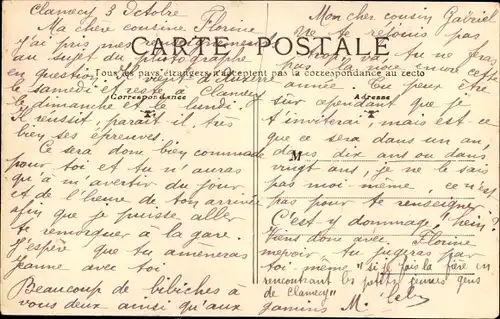 Clamecy 3 Octobre
Ma chère cousine Florine
J'ai pris mes renseignements
au sujet du photographe
en question. Il vient
le samedi et reste à Clamecy
le dimanche et le lundi.
Il réussit, paraît il, très
bien ses épreuves.
Ce sera donc bien commode
pour toi et tu n'auras
qu'à m'avertir du jour
et de l'heure de ton arrivée
afin que je puisse aller
te remorquer à la gare.
J'espère que tu amèneras
Jeanne avec toi.
Beaucoup de bibiches à
vous deux ainsi qu'aux
CARTE POSTALE
Tous les pays étrangers n'acceptent pas la correspondance au recto
Correspondance
Adresse
M
Mon cher cousin Gabriel
Ne te réjouis pas
trop car tu ne feras
pas la noce encore cette
année. Tu peux être
sûr cependant que je
t'inviterai mais est-ce
que ce sera dans un an,
dans dix ans ou dans
vingt ans, je ne le sais
pas moi-même, ce n'est
pas pour te renseigner.
C'est y dommage, "hein"?
Viens donc avec Florine
me voir tu jugeras par
toi même "si je fais la fière en
rencontrant les petits jeunes gens
de Clamecy"
gamins M.